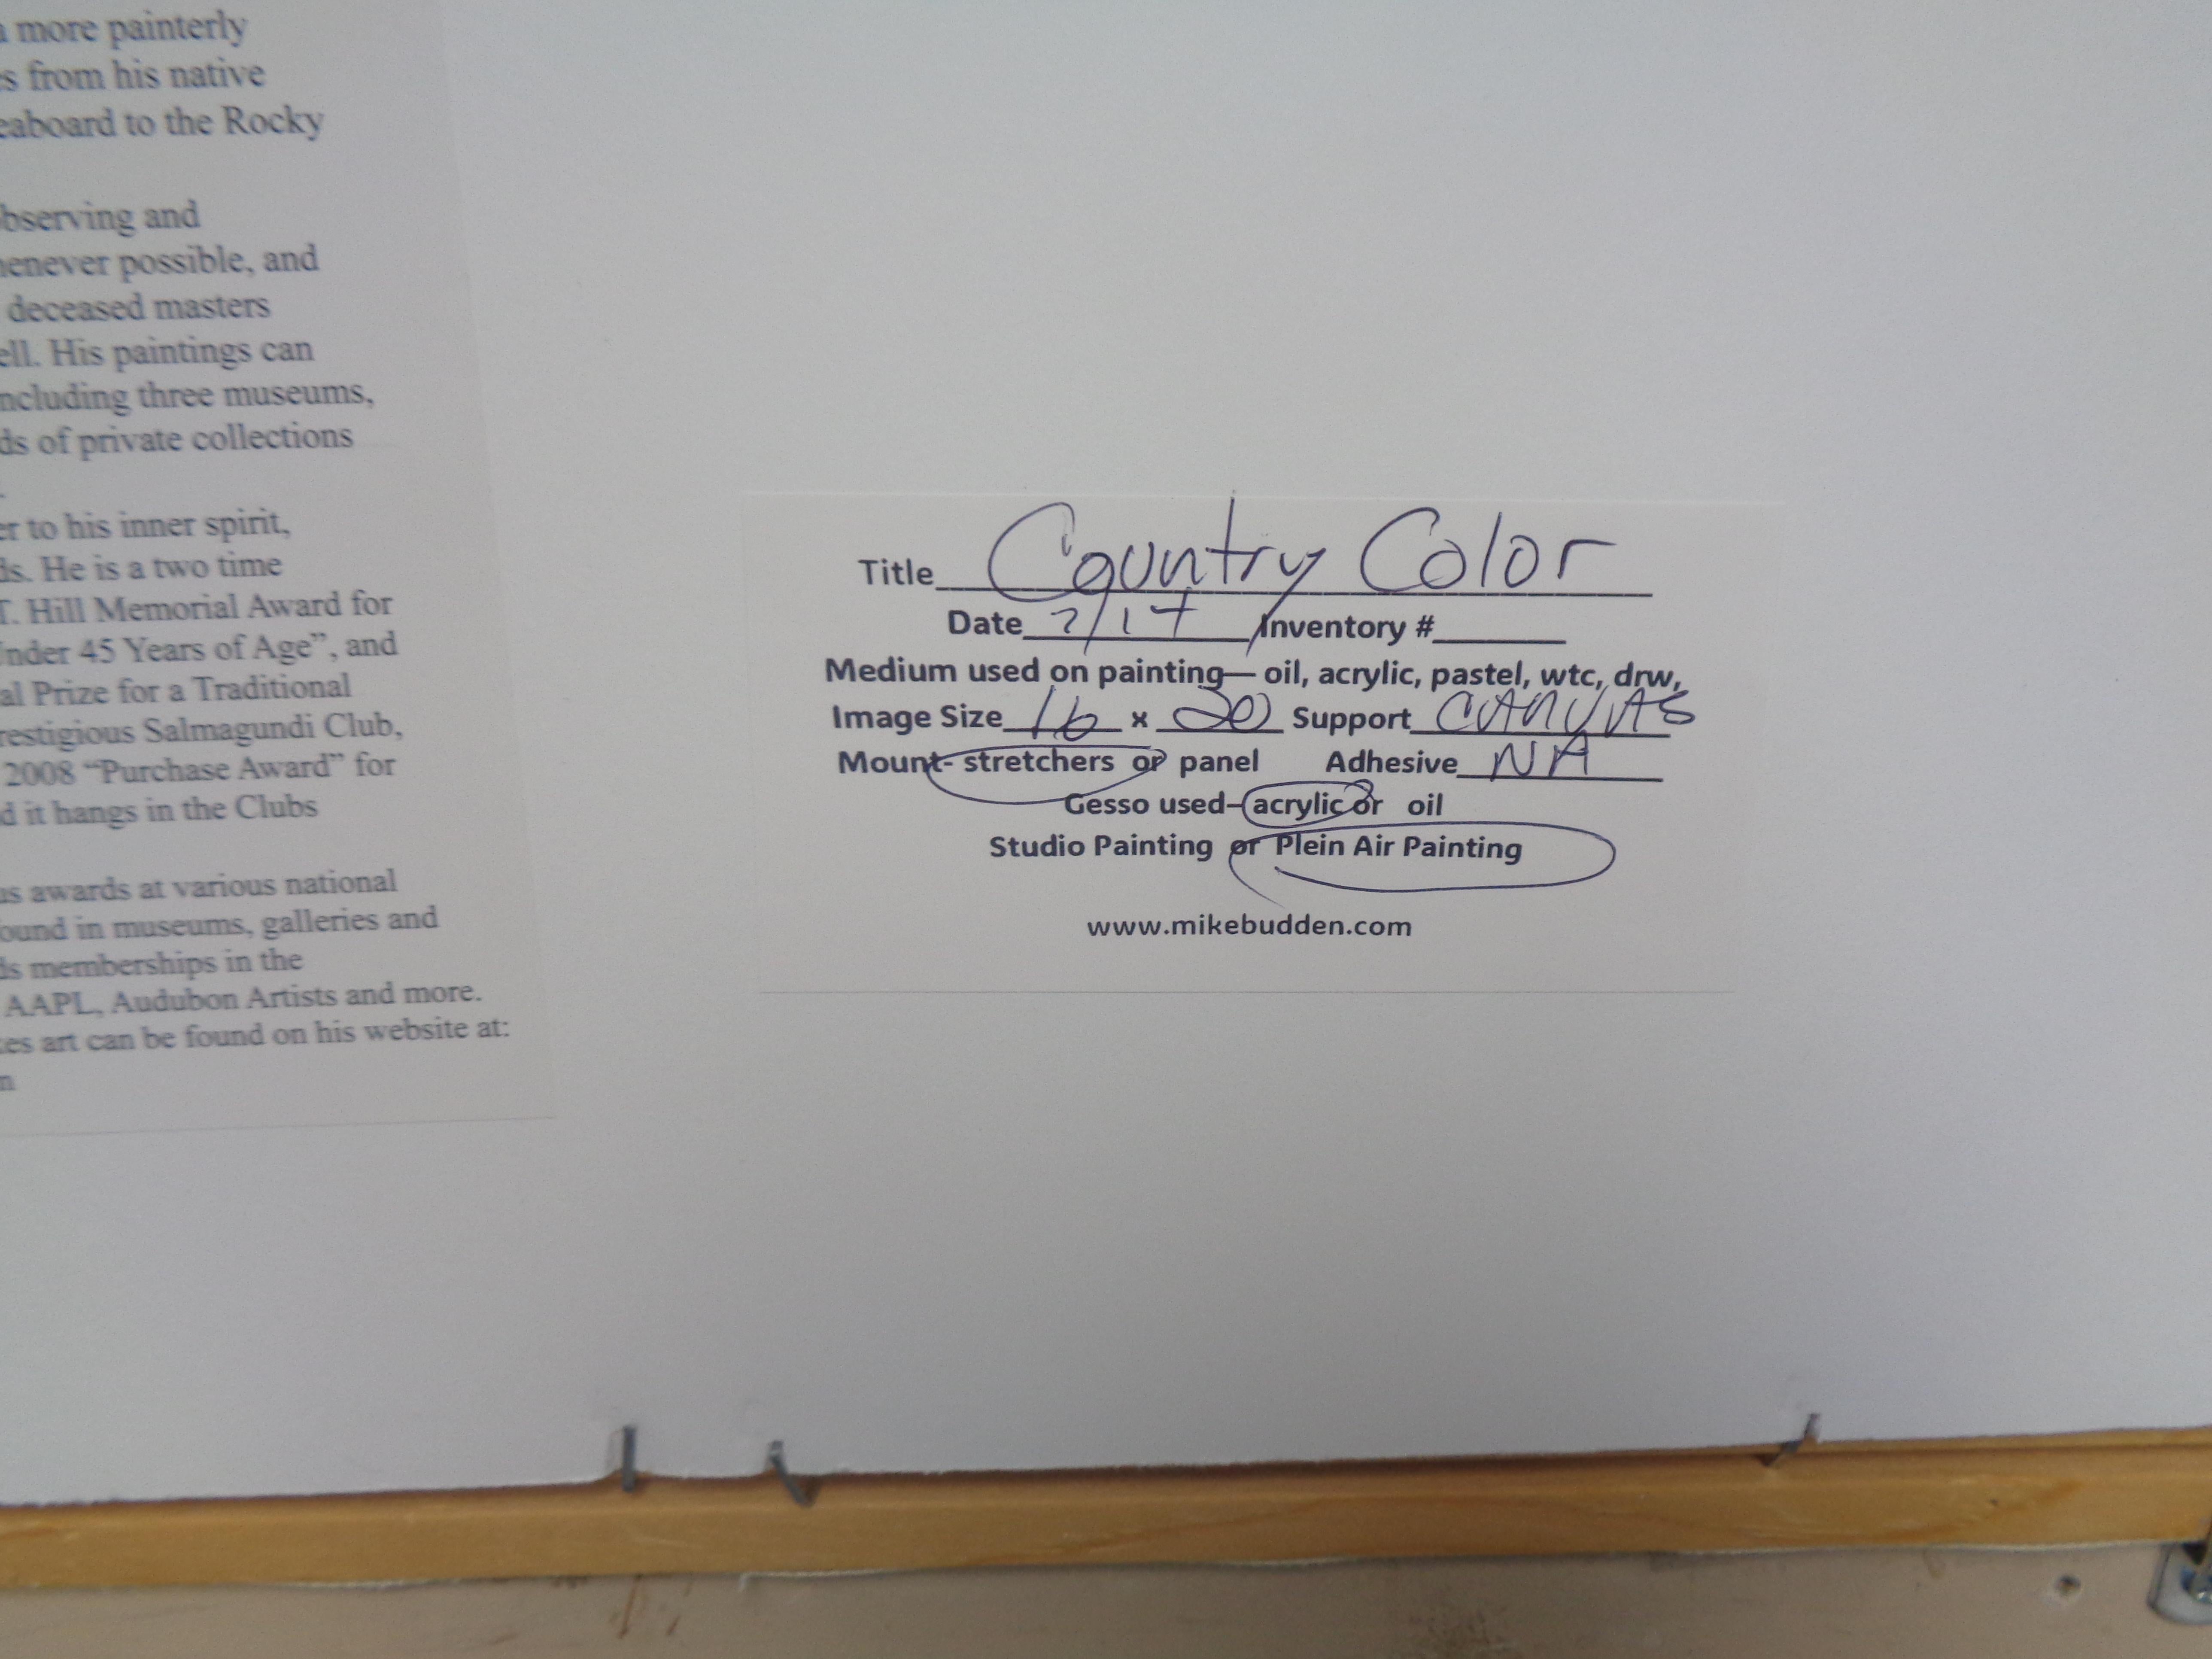 more painterly
s from his native
eaboard to the Rocky
bserving and
henever possible, and
deceased masters
ell. His paintings can
ncluding three museums,
ds of private collections
er to his inner spirit,
ds. He is a two time
T. Hill Memorial Award for
Under 45 Years of Age”, and
al Prize for a Traditional
restigious Salmagundi Club,
2008 “Purchase Award” for
d it hangs in the Clubs
us awards at various national
ound in museums, galleries and
ds memberships in the
AAPL, Audubon Artists and more.
kes art can be found on his website at:
Title Country Color
Date 7/17 Inventory #
Medium used on painting— oil, acrylic, pastel, wtc, drw,
Image Size 16 x 20 Support CANVAS
Mount- stretchers or panel Adhesive NA
Gesso used– acrylic or oil
Studio Painting or Plein Air Painting
www.mikebudden.com